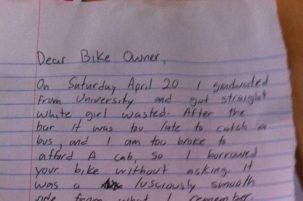 Dear Bike Owner,
On Saturday April 20 I graduated
from University and got straight
white girl wasted. After the
bar it was too late to catch a
bus, and I am too broke to
afford A cab, so I borrowed
your bike without asking. It
was a lusciously smooth
ride from what I remember.